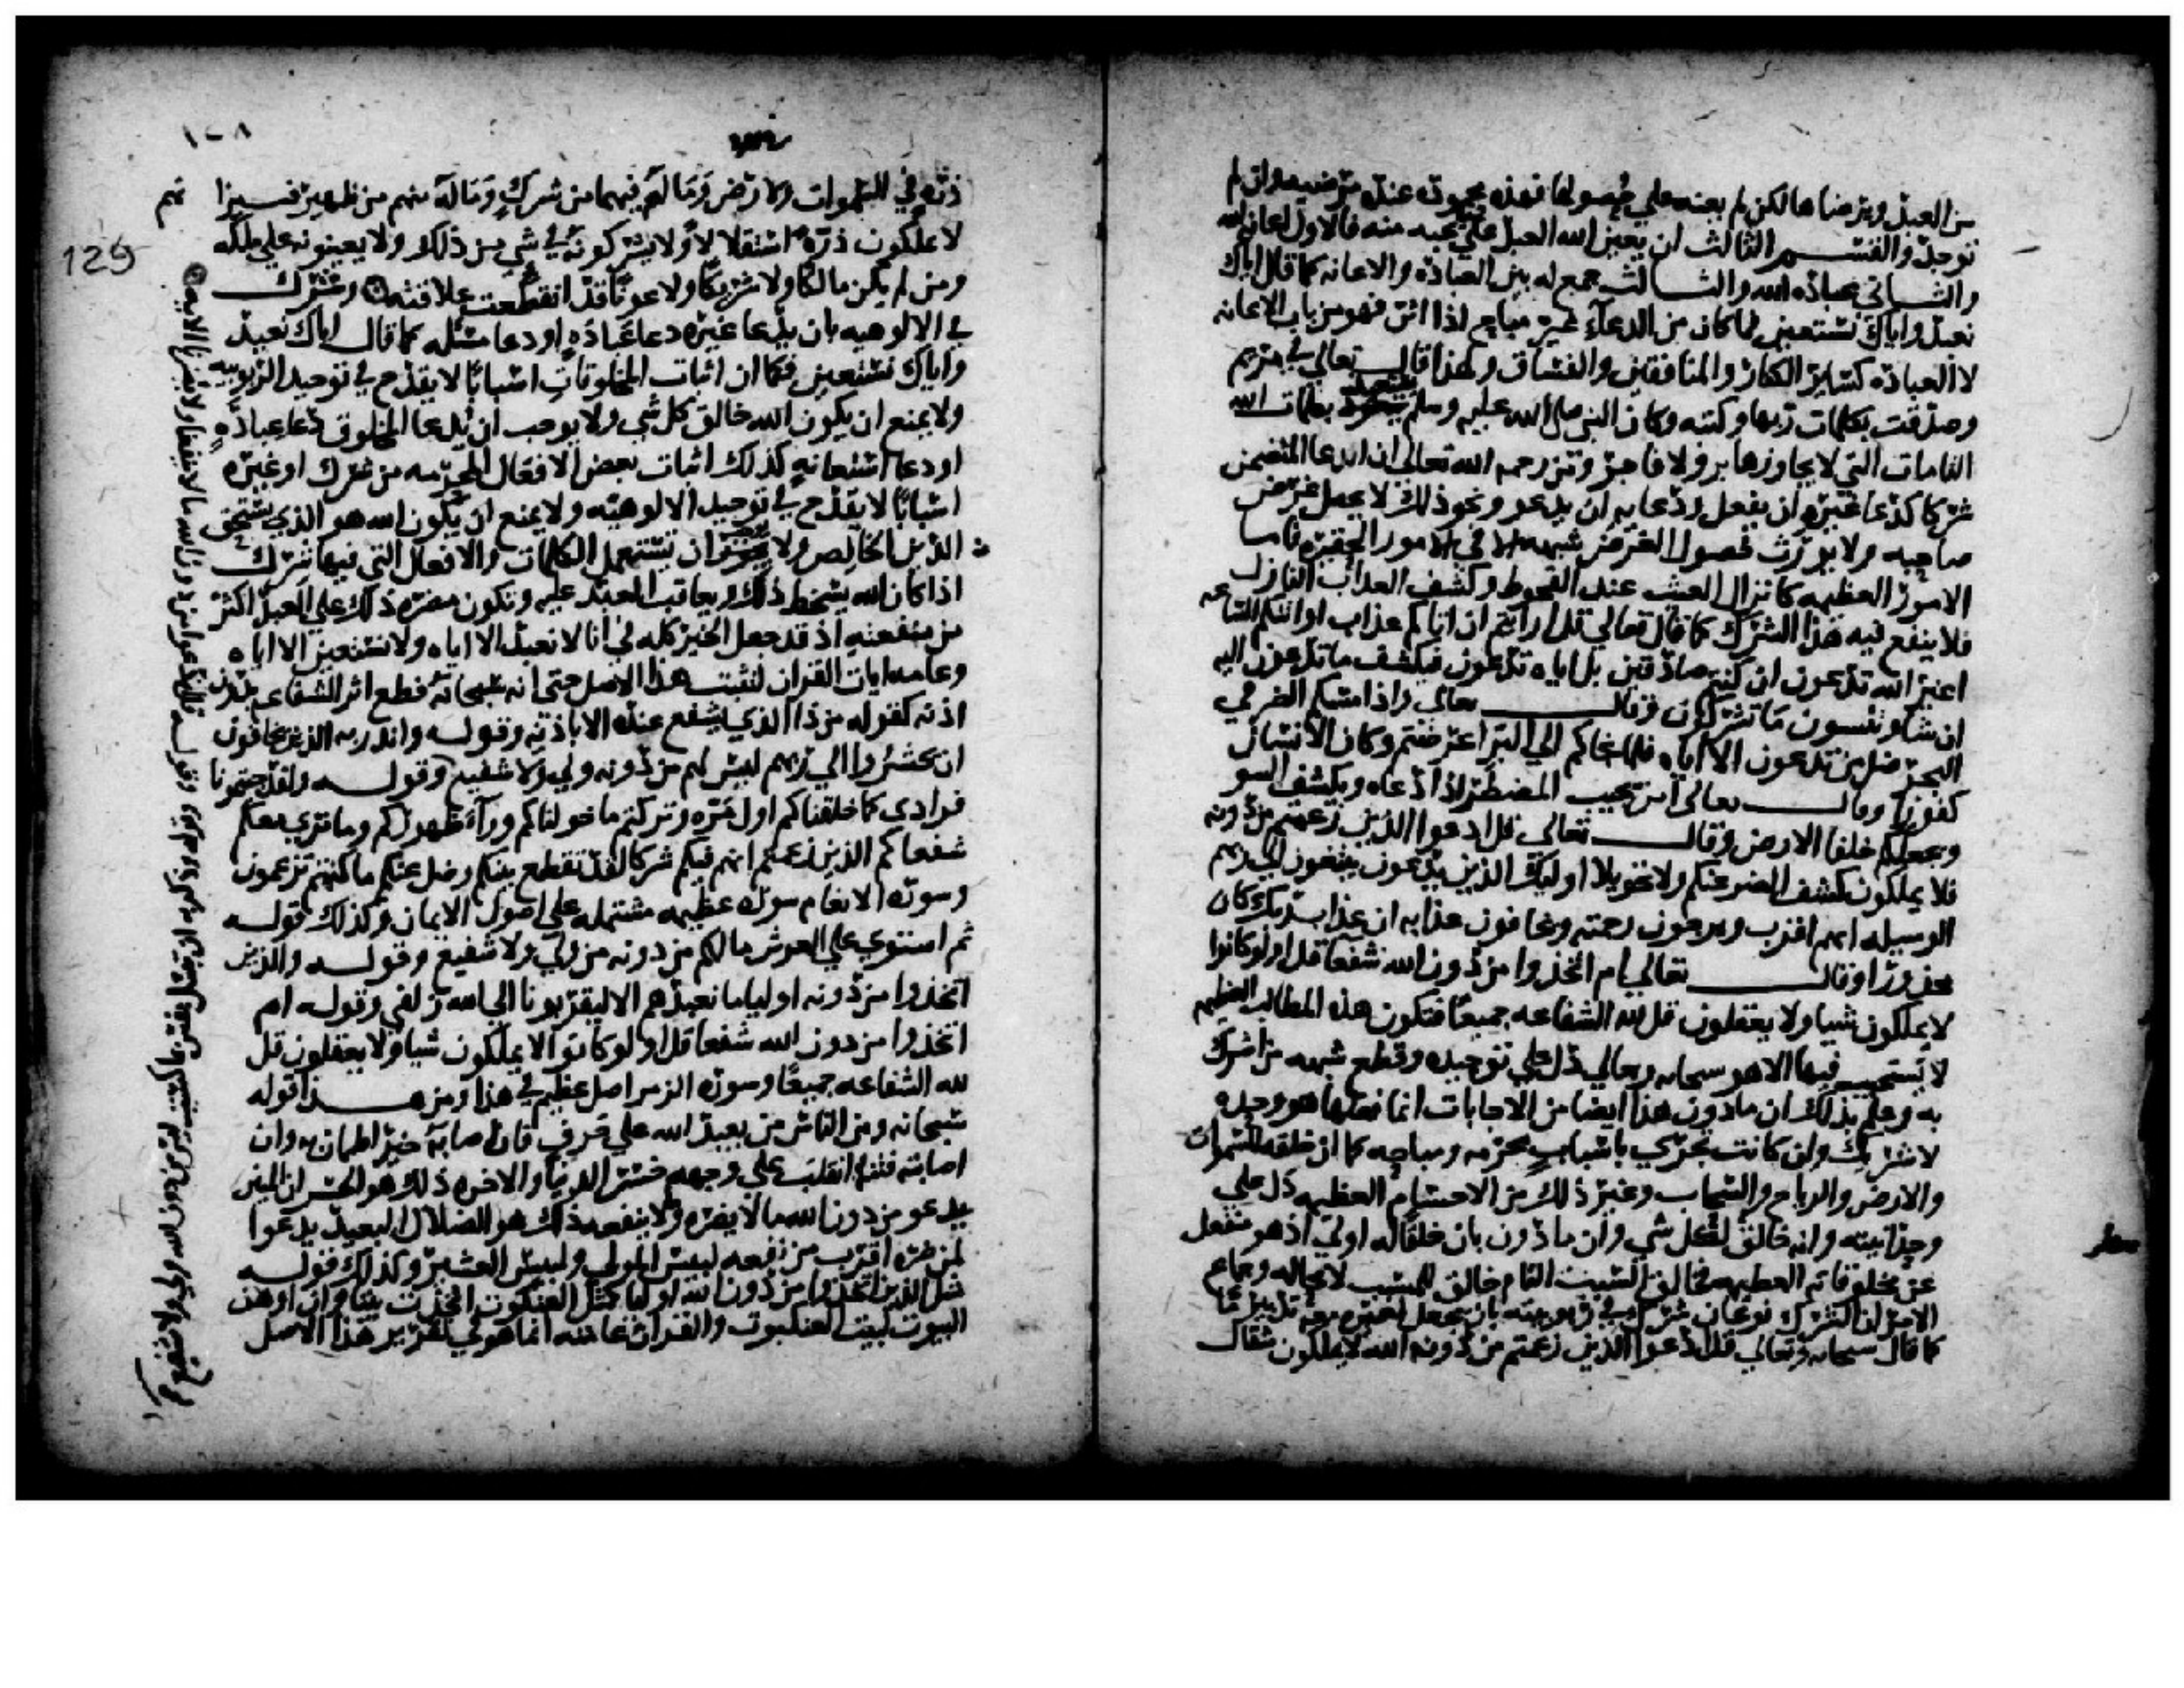 من العبد ويرضاها لكن لم يعنه علي حصولها فهذه محبوبة عنده مرضيه وان لم
توجد والقسم الثالث ان يعين الله العبد علي محبه منه فالاول اعانه لله
والثاني عباده لله والثالث جمع له بين العبادة والاعانه كما قال اياك
نعبد واياك نستعين فما كان من الدعاء غير مباح اذا اثر فهو من باب الاعانه
لا العبادة كساير الكفار والمنافقين والفساق ولهذا قال تعالي في مريم
وصدقت بكلمات ربها وكتبه وكان النبي صلى الله عليه وسلم يستعيذ بكلمات الله
التامات التي لا يجاوزها بر ولا فاجر ومن رحمه الله تعالي ان الدعا المتضمن
شركا كدعا غيره ان يفعل ودعايه ان يدعو ونحو ذلك لا يحصل غرض
صاحبه ولا يورث حصول الغرض شبهه الا في الامور الحقيره فاما
الامور العظيمه كانزال الغيث عند القحوط وكشف العذاب النازل
فلا ينفع فيه هذا الشرك كما قال تعالي قل ارايتم ان اتاكم عذاب الله او اتتكم الساعه
اغير الله تدعون ان كنتم صادقين بل اياه تدعون فيكشف ما تدعون اليه
ان شا وتنسون ما تشركون وقال تعالى واذا مسكم الضر في
البحر ضل من تدعون الا اياه فلما نجاكم الي البر اعرضتم وكان الانسان
كفورا وقال تعالى امن يجيب المضطر اذا دعاه ويكشف السو
ويجعلكم خلفا الارض وقال تعالى قل ادعوا الذين زعمتم من دونه
فلا يملكون كشف الضر عنكم ولا تحويلا اوليك الذين يدعون يبتغون الي ربهم
الوسيله ايهم اقرب ويرجون رحمته ويخافون عذابه ان عذاب ربك كان
محذورا وقال تعالي ام اتخذوا من دون الله شفعا قل اولو كانوا
لا يملكون شيا ولا يعقلون قل لله الشفاعه جميعا فتكون هذه المطالب العظيمه
لا يستجيب فيها الا هو سبحانه وتعالي دل علي توحيده وقطع شبهه من اشرك
به وعلم بذلك ان ما دون هذا ايضا من الاجابات انما فعلها هو وحده
لا شريك له وان كانت تجري باسباب محرمه ومباحه كما ان خلقه للسموات
والارض والرياح والسحاب وغير ذلك من الاجسام العظيمه دل علي
وحدانيته وانه خالق لكل شي وان ما دون بان خلقا له اولي اذ هو منفعل
عن مخلوقاته العظيمه فخالق السبب التام خالق للمسبب لا محاله وجماع
الامر ان الشرك نوعان شرك في ربوبيته بان يجعل لغيره معه تدبيرا ما
كما قال سبحانه وتعالي قل ادعوا الذين زعمتم من دون الله لا يملكون مثقال
١٢٨
129
ذره في السموات والارض وما لهم فيهما من شرك وما له منهم من ظهير فبين
انهم
لا يملكون ذره استقلالا ولا يشركونه في شي من ذلك ولا يعينونه علي ملكه
ومن لم يكن مالكا ولا شريكا ولا عونا فقد انقطعت علاقته وشرك
في الالوهيه بان يدعا غيره دعا عباده او دعا مسله كما قال اياك نعبد
واياك نستعين فكما ان اثبات المخلوقات اسبابا لا يقدح في توحيد الربوبيه
ولا يمنع ان يكون الله خالق كل شي ولا يوجب ان يدعا المخلوق دعا عباده
او دعا استعانه كذلك اثبات بعض الافعال المحرمه من شرك او غيره
اسبابا لا يقدح في توحيد الالوهيه ولا يمنع ان يكون الله هو الذي يستحق
الدين الخالص ولا يوجب ان نستعمل الكلمات والافعال التي فيها شرك
اذا كان الله يسخط ذلك ويعاقب العبد عليه وتكون مضره ذلك علي العبد اكثر
من منفعته اذ قد جعل الخير كله في انا لا نعبد الا اياه ولا نستعين الا اياه
وعامه ايات القران لتثبت هذا الاصل حتى انه سبحانه قطع اثر الشفاعه بدون
اذنه كقوله من ذا الذي يشفع عنده الا باذنه وقوله وانذر به الذين يخافون
ان يحشروا الي ربهم ليس لهم من دونه ولي ولا شفيع وقوله ولقد جيتمونا
فرادى كما خلقناكم اول مره وتركتم ما خولناكم ورآ ظهوركم وما نري معكم
شفعاكم الذين زعمتم انهم فيكم شركا لقد تقطع بينكم وضل عنكم ما كنتم تزعمون
وسوره الانعام سوره عظيمه مشتمله علي اصول الايمان وكذلك قوله
ثم استوي علي العرش ما لكم من دونه من ولي ولا شفيع وقوله والذين
اتخذوا من دونه اوليا ما نعبدهم الا ليقربونا الي الله زلفي وقوله ام
اتخذوا من دون الله شفعا قل اولو كانوا لا يملكون شيا ولا يعقلون قل
لله الشفاعه جميعا وسوره الزمر اصل عظيم في هذا ومن هذا قوله
سبحانه ومن الناس من يعبد الله علي حرف فان اصابه خير اطمان به وان
اصابته فتنه انقلب علي وجهه خسر الدنيا والاخره ذلك هو الخسران المبين
يدعو من دون الله ما لا يضره ولا ينفعه ذلك هو الضلال البعيد يدعوا
لمن ضره اقرب من نفعه لبيس المولي ولبيس العشير وكذلك قوله
مثل الذين اتخذوا من دون الله اوليا كمثل العنكبوت اتخذت بيتا وان اوهن
البيوت لبيت العنكبوت والقران عامته انما هو في تقرير هذا الاصل